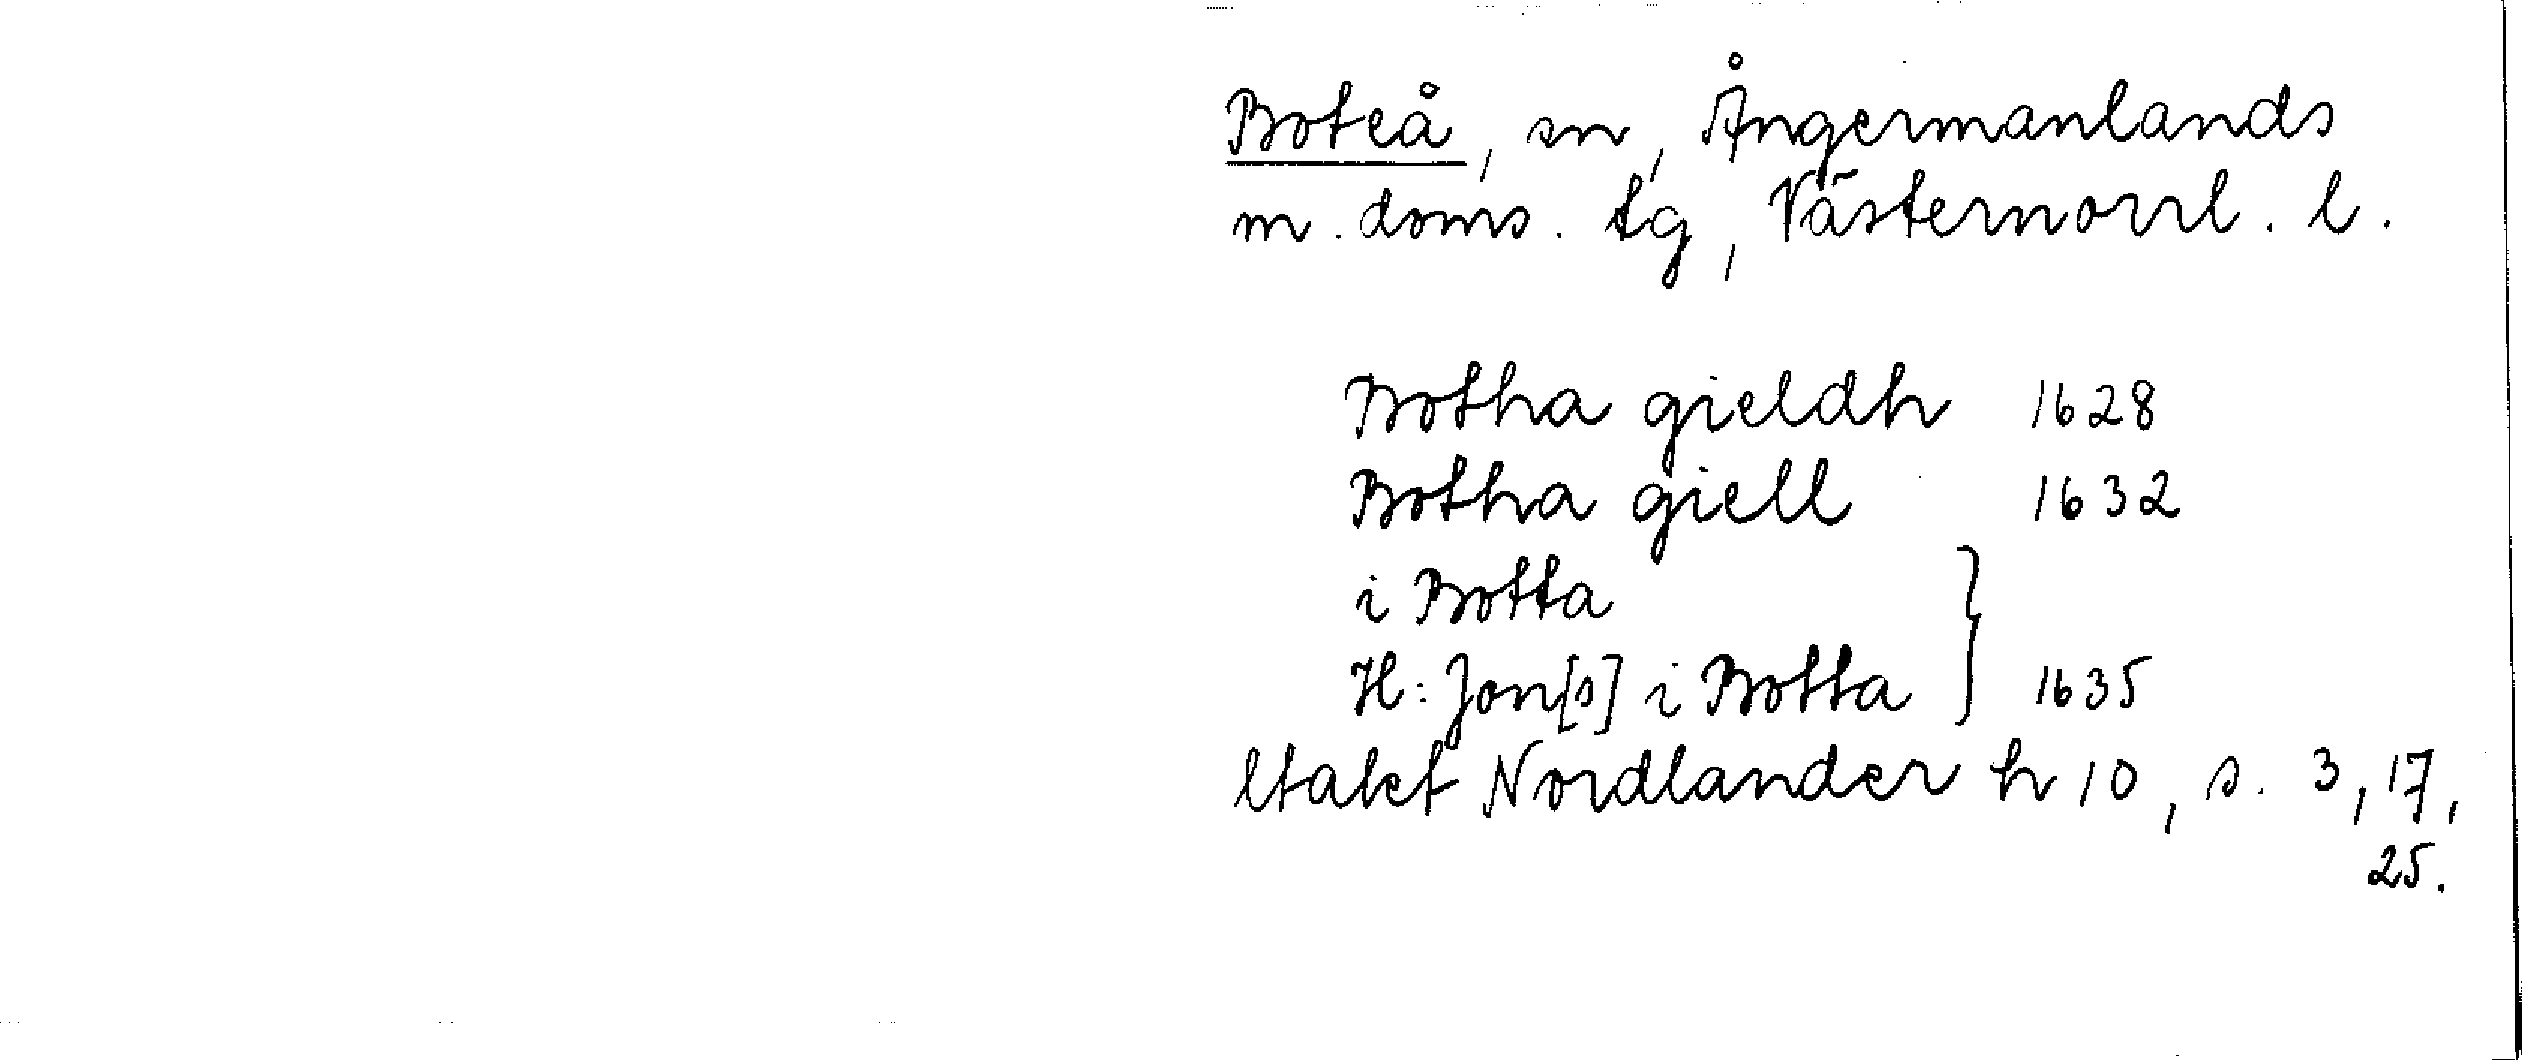 Boteå, sn, Ångermanlands
m. doms. tg, Västernorrl. l.
Botha gieldh 1628
Botha giell 1632
i Botta
H: Jon[s] i Botta } 1635
Utaket Nordlander h 10, s. 3, 17,
25.